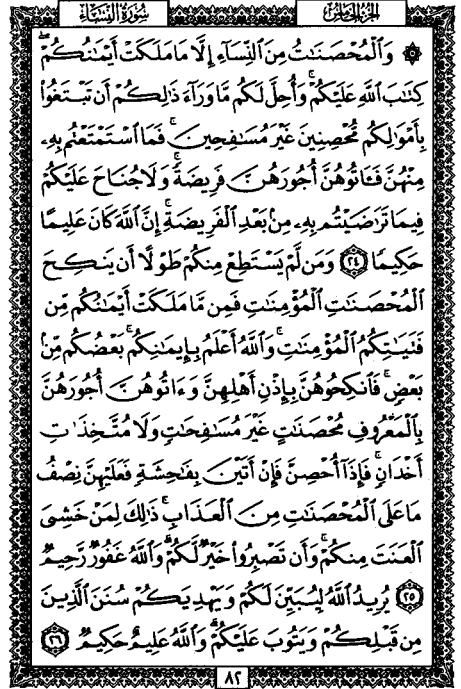 سُورَةُ النِّسَاءِ الجُزْءُ الخَامِسُ
۞ وَٱلْمُحْصَنَٰتُ مِنَ ٱلنِّسَآءِ إِلَّا مَا مَلَكَتْ أَيْمَٰنُكُمْ ۖ
كِتَٰبَ ٱللَّهِ عَلَيْكُمْ ۚ وَأُحِلَّ لَكُم مَّا وَرَآءَ ذَٰلِكُمْ أَن تَبْتَغُوا۟
بِأَمْوَٰلِكُم مُّحْصِنِينَ غَيْرَ مُسَٰفِحِينَ ۚ فَمَا ٱسْتَمْتَعْتُم بِهِۦ
مِنْهُنَّ فَـَٔاتُوهُنَّ أُجُورَهُنَّ فَرِيضَةً ۚ وَلَا جُنَاحَ عَلَيْكُمْ
فِيمَا تَرَٰضَيْتُم بِهِۦ مِنۢ بَعْدِ ٱلْفَرِيضَةِ ۚ إِنَّ ٱللَّهَ كَانَ عَلِيمًا
حَكِيمًا ٢٤ وَمَن لَّمْ يَسْتَطِعْ مِنكُمْ طَوْلًا أَن يَنكِحَ
ٱلْمُحْصَنَٰتِ ٱلْمُؤْمِنَٰتِ فَمِن مَّا مَلَكَتْ أَيْمَٰنُكُم مِّن
فَتَيَٰتِكُمُ ٱلْمُؤْمِنَٰتِ ۚ وَٱللَّهُ أَعْلَمُ بِإِيمَٰنِكُم ۚ بَعْضُكُم مِّنۢ
بَعْضٍ ۚ فَٱنكِحُوهُنَّ بِإِذْنِ أَهْلِهِنَّ وَءَاتُوهُنَّ أُجُورَهُنَّ
بِٱلْمَعْرُوفِ مُحْصَنَٰتٍ غَيْرَ مُسَٰفِحَٰتٍ وَلَا مُتَّخِذَٰتِ
أَخْدَانٍ ۚ فَإِذَآ أُحْصِنَّ فَإِنْ أَتَيْنَ بِفَٰحِشَةٍ فَعَلَيْهِنَّ نِصْفُ
مَا عَلَى ٱلْمُحْصَنَٰتِ مِنَ ٱلْعَذَابِ ۚ ذَٰلِكَ لِمَنْ خَشِىَ
ٱلْعَنَتَ مِنكُمْ ۚ وَأَن تَصْبِرُوا۟ خَيْرٌ لَّكُمْ ۗ وَٱللَّهُ غَفُورٌ رَّحِيمٌ
٢٥ يُرِيدُ ٱللَّهُ لِيُبَيِّنَ لَكُمْ وَيَهْدِيَكُمْ سُنَنَ ٱلَّذِينَ
مِن قَبْلِكُمْ وَيَتُوبَ عَلَيْكُمْ ۗ وَٱللَّهُ عَلِيمٌ حَكِيمٌ ٢٦
٨٢